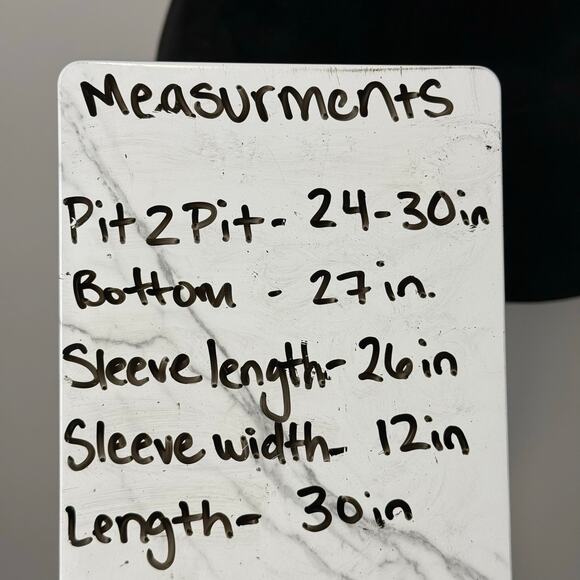 Measurments
Pit 2 Pit- 24-30in
Bottom - 27in.
Sleeve length- 26in
Sleeve width- 12in
Length- 30in